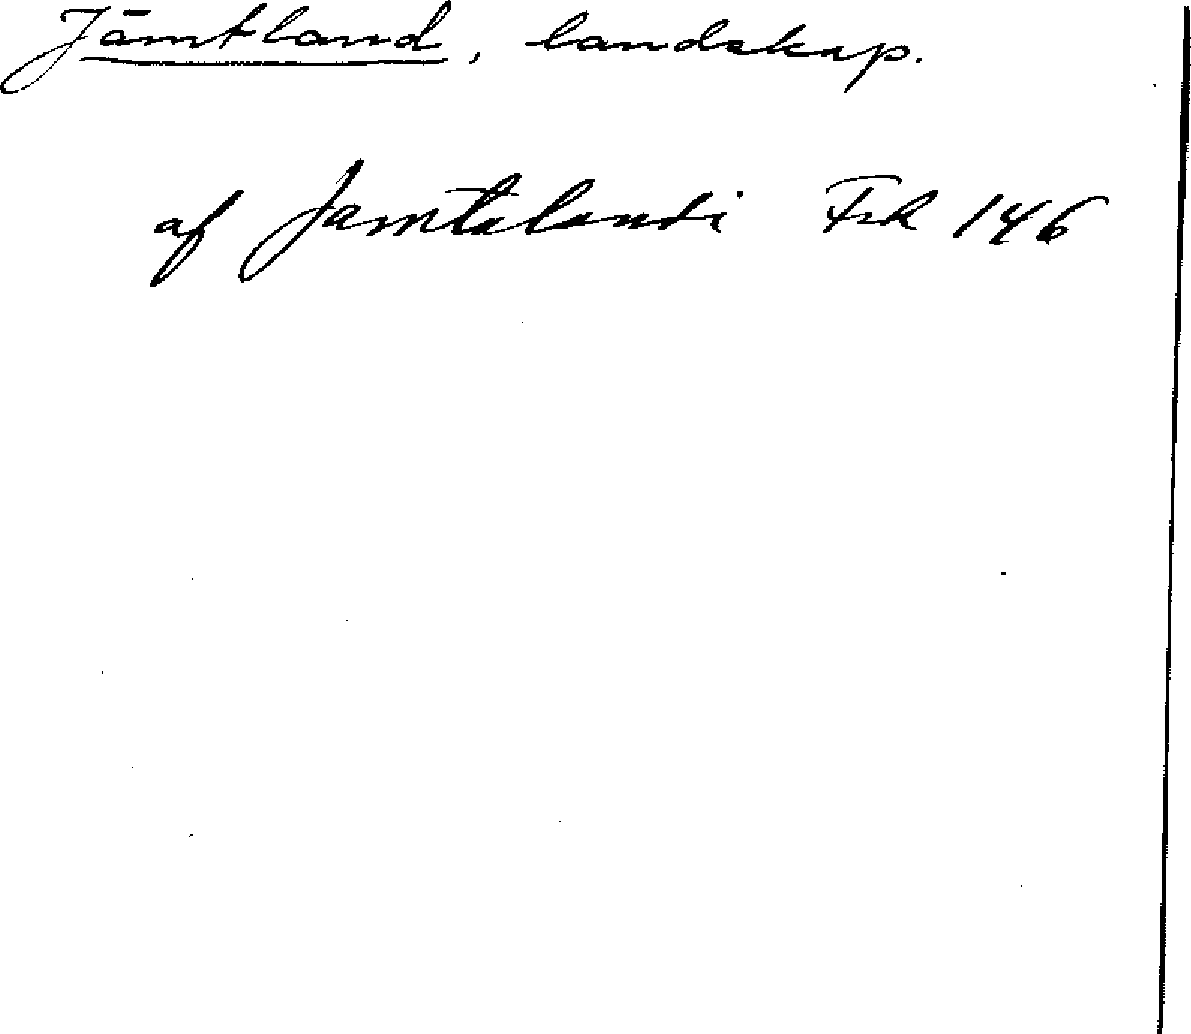 Jämtland, landskap.
af Jamtalandi Fsk 146